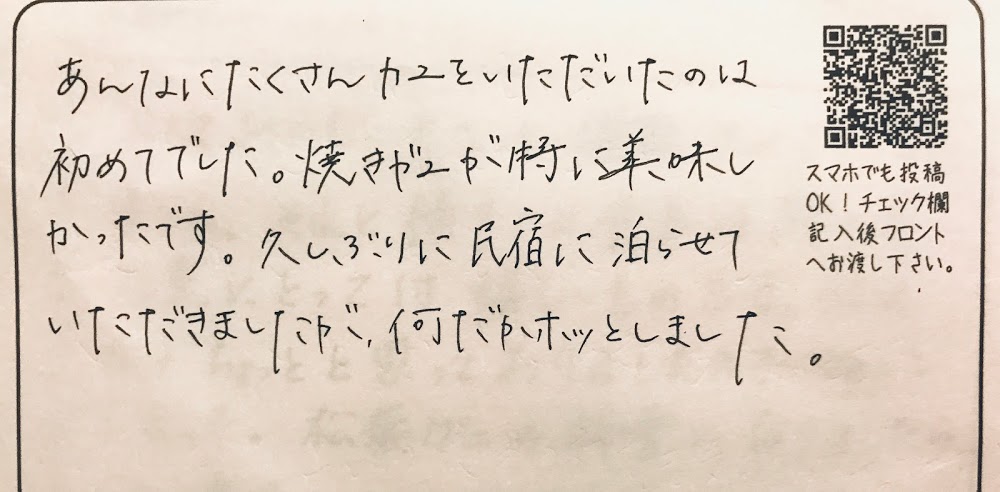 あんなにたくさんカニをいただいたのは
初めてでした。焼きガニが特に美味し
かったです。久しぶりに民宿に泊らせて
いただきましたが、何だかホッとしました。
スマホでも投稿
OK！チェック欄
記入後フロント
へお渡し下さい。